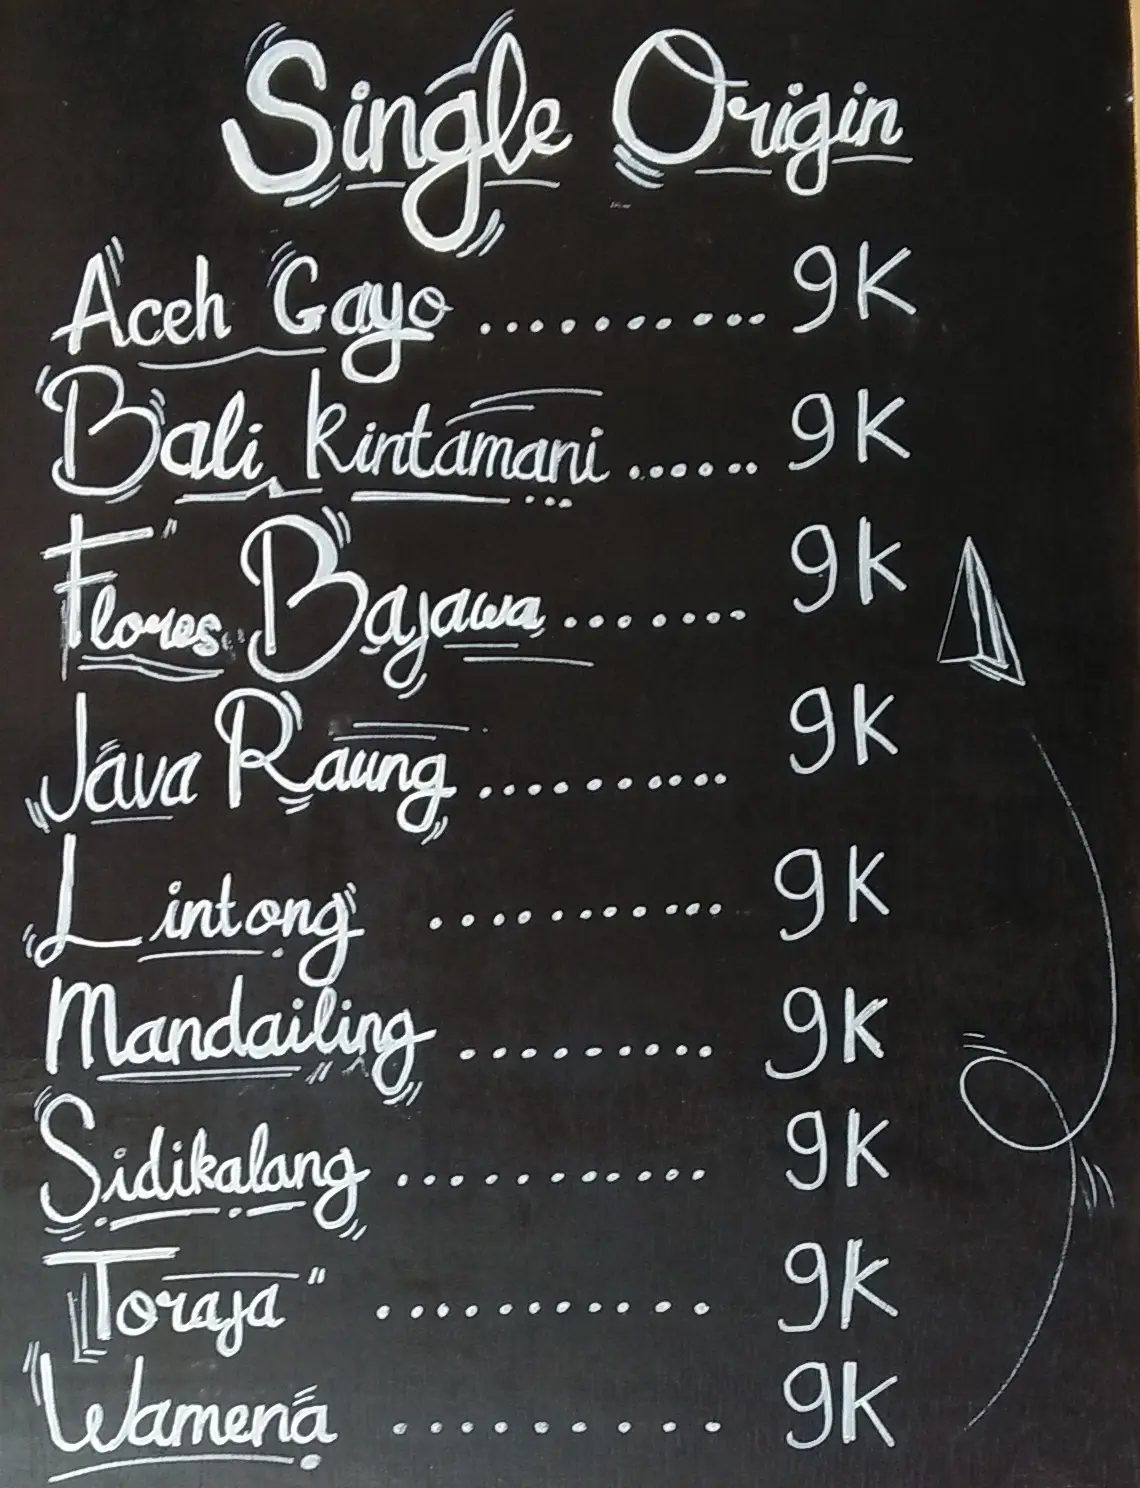 Single Origin
Aceh Gayo .......... 9K
Bali Kintamani ...... 9K
Flores Bajawa ....... 9K
Java Raung .......... 9K
Lintong ........... 9K
Mandailing ......... 9K
Sidikalang ........... 9K
Toraja ........... 9K
Wamena .......... 9K